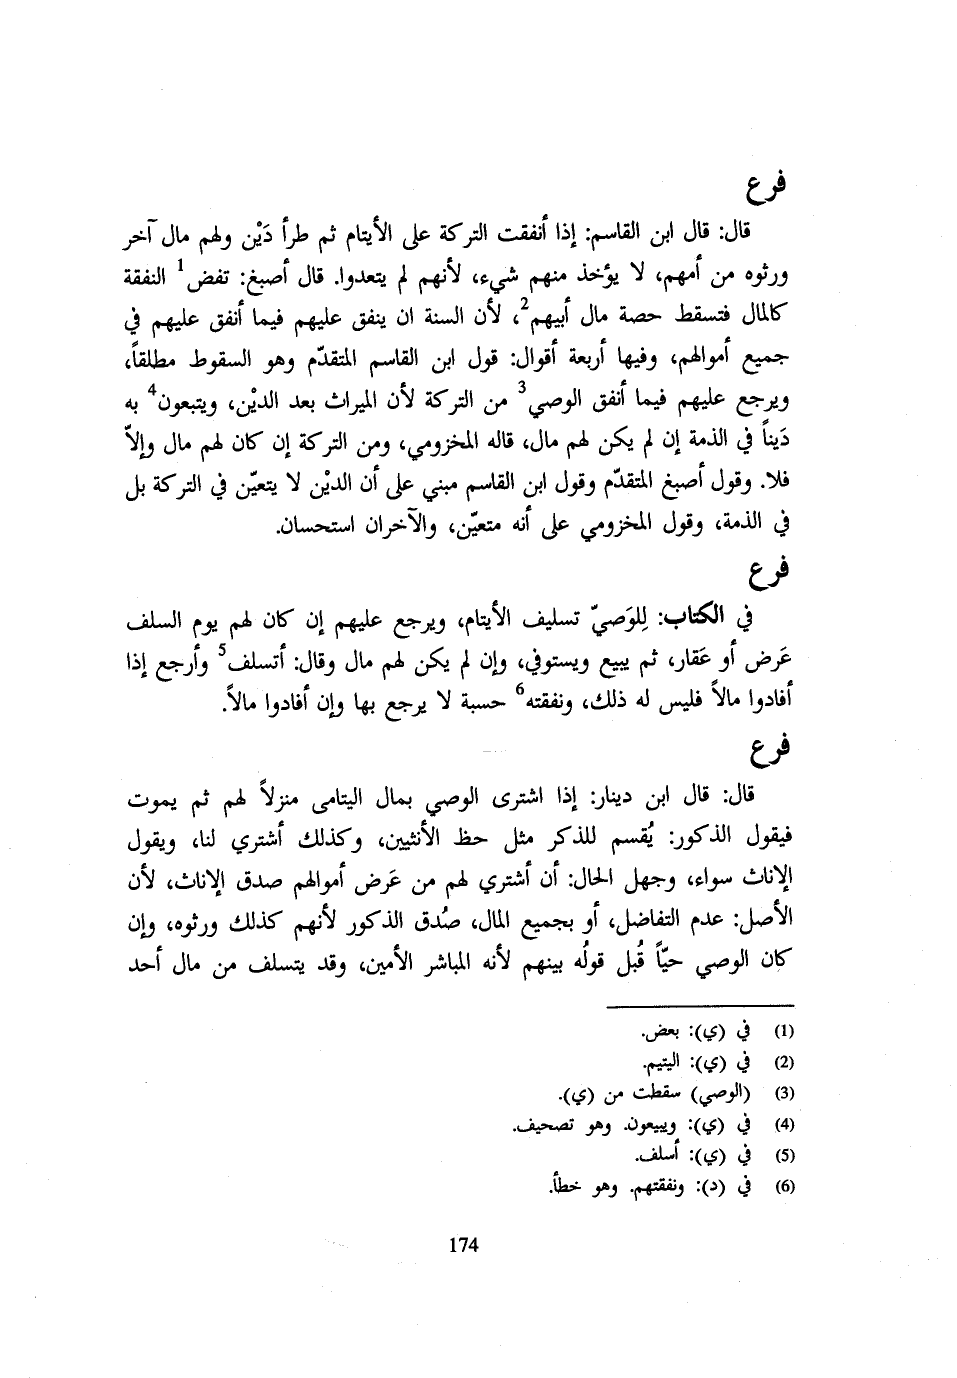 فرع
قال: قال ابن القاسم: إذا أنفقت التركة على الأيتام ثم طرأ دَيْن ولهم مال آخر
ورثوه من أمهم، لا يؤخذ منهم شيء، لأنهم لم يتعدوا. قال أصبغ: تفض1 النفقة
كالمال فتسقط حصة مال أبيهم2، لأن السنة ان ينفق عليهم فيما أنفق عليهم في
جميع أموالهم، وفيها أربعة أقوال: قول ابن القاسم المتقدّم وهو السقوط مطلقاً،
ويرجع عليهم فيما أنفق الوصي3 من التركة لأن الميراث بعد الديْن، ويتبعون4 به
دَيناً في الذمة إن لم يكن لهم مال، قاله المخزومي، ومن التركة إن كان لهم مال وإلاّ
فلا. وقول أصبغ المتقدّم وقول ابن القاسم مبني على أن الديْن لا يتعيّن في التركة بل
في الذمة، وقول المخزومي على أنه متعيّن، والآخران استحسان.
فرع
في الكتاب: لِلوَصيّ تسليف الأيتام، ويرجع عليهم إن كان لهم يوم السلف
عَرض أو عَقار، ثم يبيع ويستوفي، وإن لم يكن لهم مال وقال: أتسلف5 وأرجع إذا
أفادوا مالاً فليس له ذلك، ونفقته6 حسبة لا يرجع بها وإن أفادوا مالاً.
فرع
قال: قال ابن دينار: إذا اشترى الوصي بمال اليتامى منزلاً لهم ثم يموت
فيقول الذكور: يُقسم للذكر مثل حظ الأنثيين، وكذلك أشتري لنا، ويقول
الإناث سواء، وجهل الحال: أن أشتري لهم من عَرض أموالهم صدق الإناث، لأن
الأصل: عدم التفاضل، أو بجميع المال، صُدق الذكور لأنهم كذلك ورثوه، وإن
كان الوصي حيّاً قُبل قولُه بينهم لأنه المباشر الأمين، وقد يتسلف من مال أحد
(1) في (ي): بعض.
(2) في (ي): اليتيم.
(3) (الوصي) سقطت من (ي).
(4) في (ي): ويبيعون. وهو تصحيف.
(5) في (ي): أسلف.
(6) في (د): ونفقتهم. وهو خطأ.
174